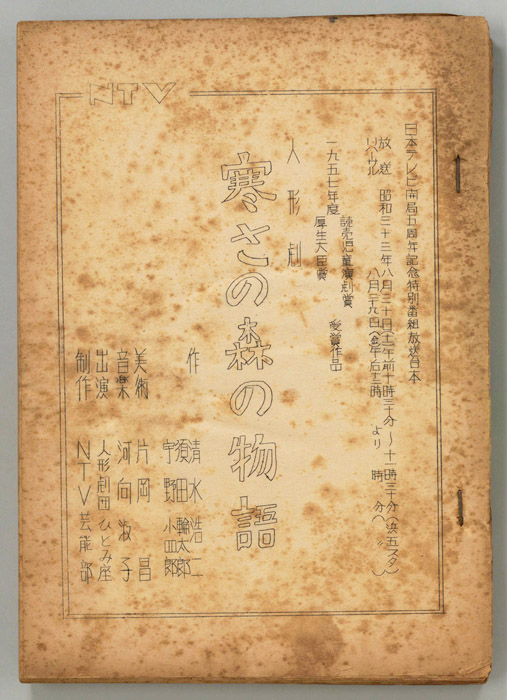 NTV
日本テレビ開局五周年記念特別番組放送台本
放送 昭和三十三年八月三十日(土)午前十時三十分〜十一時三十分(第五スタ)
八月二十九日(金)午后十二時 より 時 分( )
一九五七年度
読売児童演劇賞
厚生大臣賞
受賞作品
人形劇
寒さの森の物語
作 清水浩二
須田輪太郎
宇野小四郎
美術 片岡昌
音楽 河向淑子
出演 人形劇団ひとみ座
制作 NTV芸能部